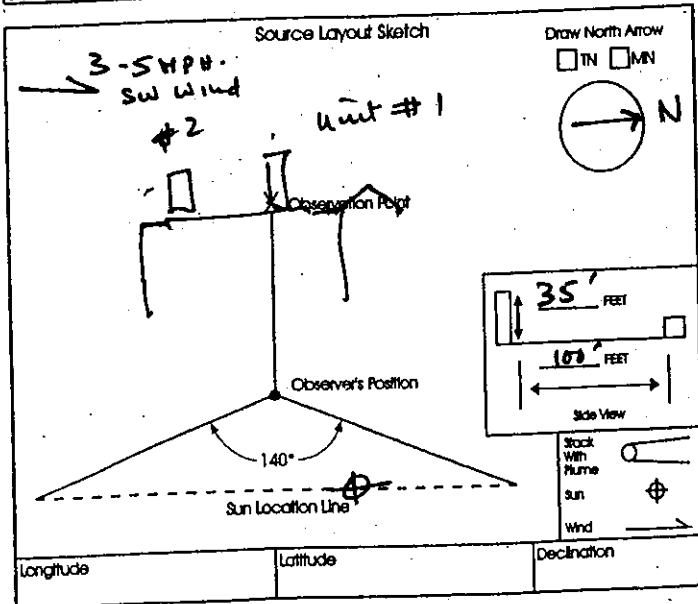 Source Layout Sketch
Draw North Arrow
TN MN
3-5 MPH.
SW Wind
#2
Unit #1
N
Observation Point
35' FEET
100' FEET
Side View
Observer's Position
140°
Sun Location Line
Stack
With
Plume
Sun
Wind
Longitude
Latitude
Declination